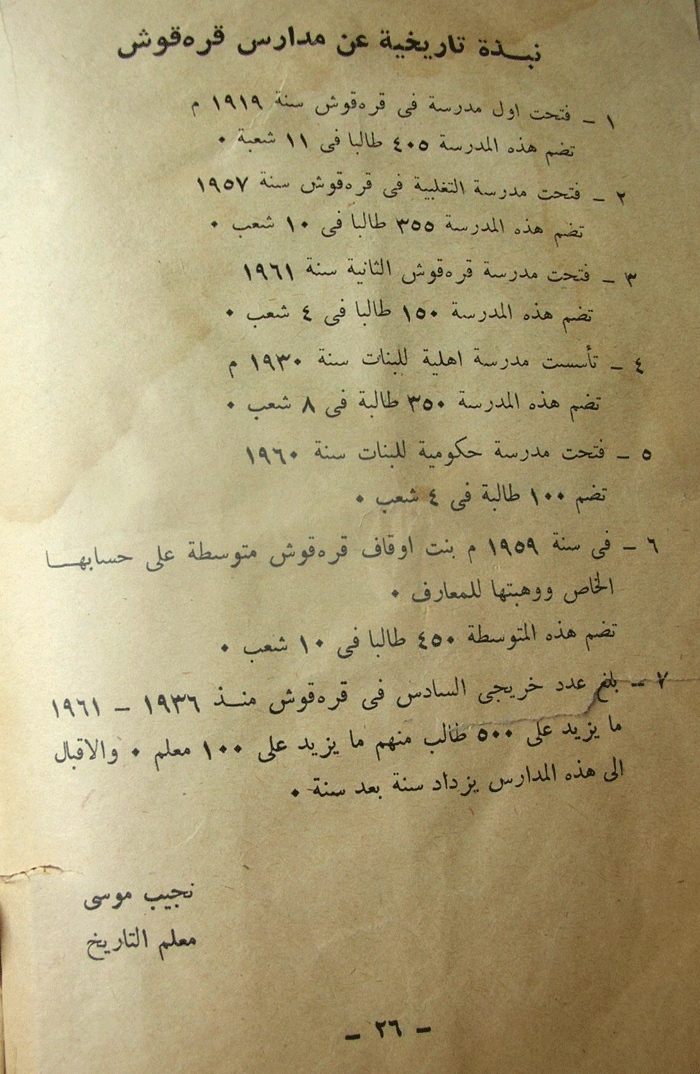 نبذة تاريخية عن مدارس قره‌قوش
١ – فتحت اول مدرسة فى قره‌قوش سنة ١٩١٩ م
تضم هذه المدرسة ٤٠٥ طالبا فى ١١ شعبة ٠
٢ – فتحت مدرسة التغلبية فى قره‌قوش سنة ١٩٥٧
تضم هذه المدرسة ٣٥٥ طالبا فى ١٠ شعب ٠
٣ – فتحت مدرسة قره‌قوش الثانية سنة ١٩٦١
تضم هذه المدرسة ١٥٠ طالبا فى ٤ شعب ٠
٤ – تأسست مدرسة اهلية للبنات سنة ١٩٣٠ م
تضم هذه المدرسة ٣٥٠ طالبة فى ٨ شعب ٠
٥ – فتحت مدرسة حكومية للبنات سنة ١٩٦٠
تضم ١٠٠ طالبة فى ٤ شعب ٠
٦ – فى سنة ١٩٥٩ م بنت اوقاف قره‌قوش متوسطة على حسابهـا
الخاص ووهبتها للمعارف ٠
تضم هذه المتوسطة ٤٥٠ طالبا فى ١٠ شعب ٠
٧ – بلغ عدد خريجى السادس فى قره‌قوش منـذ ١٩٣٦ – ١٩٦١
ما يزيد على ٥٠٠ طالب منهم ما يزيد على ١٠٠ معلم ٠ والاقبال
الى هذه المدارس يزداد سنة بعد سنة ٠
نجيب موسى
معلم التاريخ
– ٢٦ –